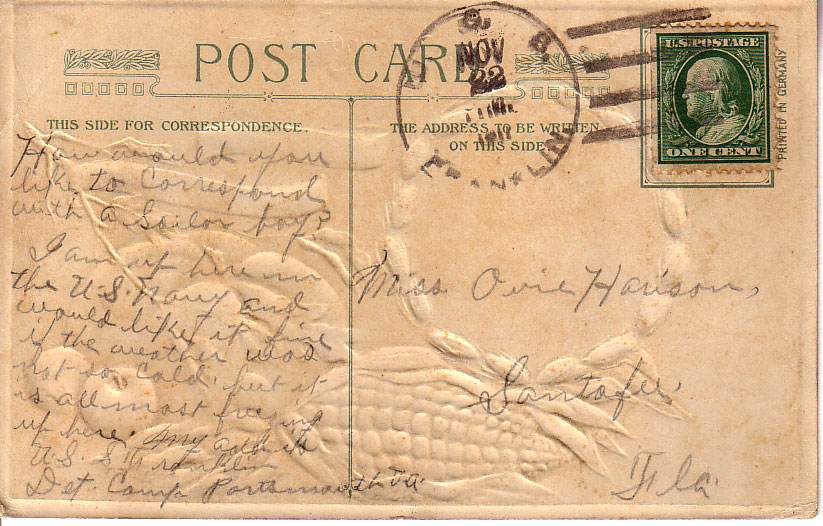 POST CARD
THIS SIDE FOR CORRESPONDENCE.
THE ADDRESS TO BE WRITTEN
ON THIS SIDE
U.S. POSTAGE
ONE CENT
PRINTED IN GERMANY
NOV
22
FRANKLIN
How would you
like to Correspond
with a Sailor boy?
I am up here in
the U.S. Navy and
would like it fine
if the weather was
not so Cold, but it
is allmost freezing
up here. My add is
U.S.S. Franklin
Det Camp Portsmouth Va.
Miss Ovie Harison,
Santafee,
Fla